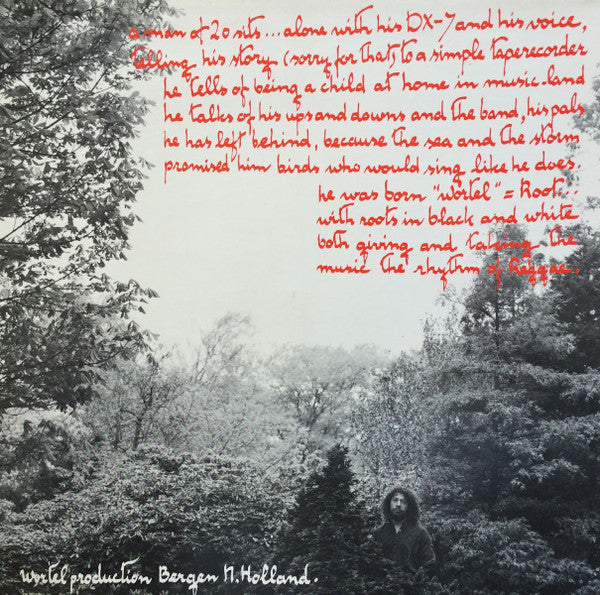 a man of 20 sits... alone with his DX-7 and his voice,
telling his story (sorry for that) to a simple taperecorder
he tells of being a child at home in music-land
he talks of his ups and downs and the band, his pals
he has left behind, because the sea and the storm
promised him birds who would sing like he does.
he was born "wortel" = Root...
with roots in black and white
both giving and taking the
music the rhythm of Reggae.
wortel production Bergen N. Holland.